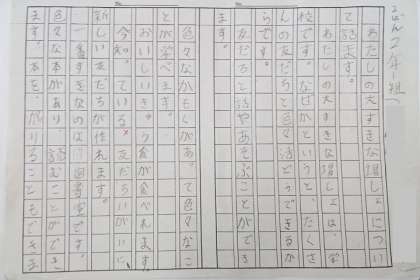 2年1組
わたしの大すきな場しょについ
て話します。
わたしの大すきな場しょは、学
校です。なぜかというと、たくさ
んの友だちと色々話どうできるか
らです。
友だちと話やあそぶことができ
ます。
色々なかもくがあって色々なこ
とが学べます。
おいしいきゅう食が食べれます。
今知っている友だちいがいに、
新しい友だちが作れます。
一番すきなのは図書室です。
色々な本があり、読むことができ
ます。本を、かりることもできま